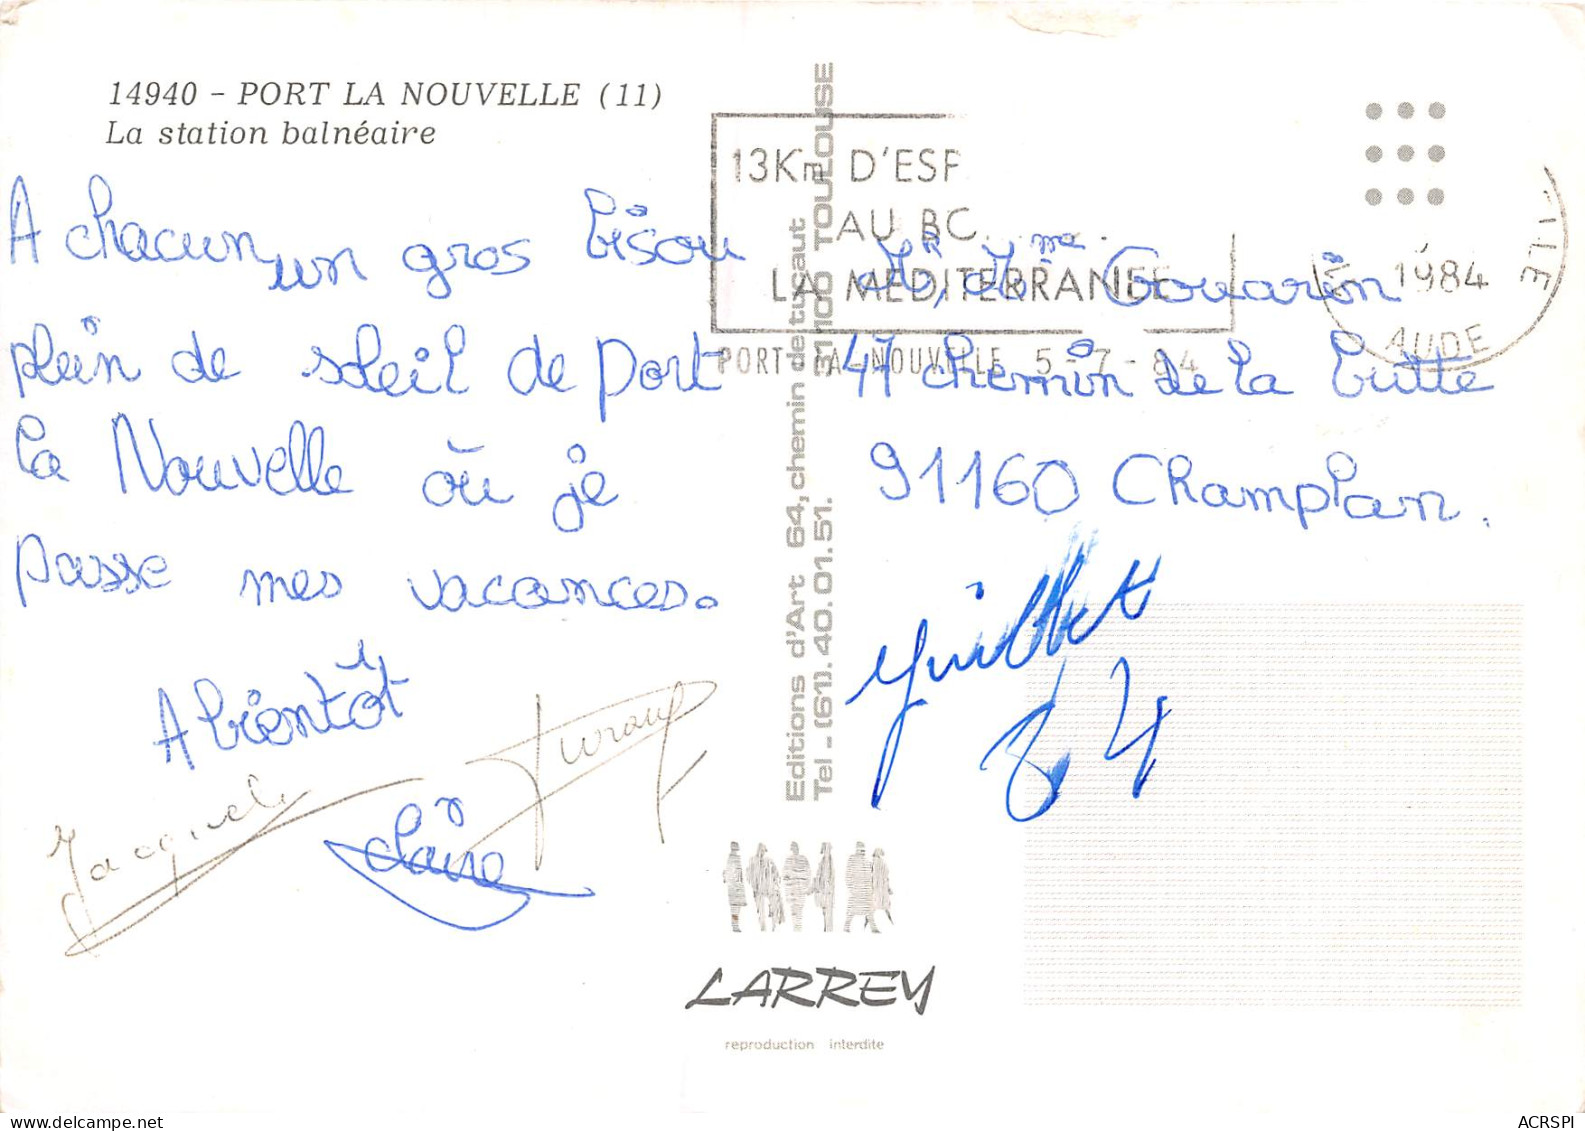 14940 - PORT LA NOUVELLE (11)
La station balnéaire
A chacun un gros bisou
plein de soleil de Port
La Nouvelle où je
passe mes vacances.
A bientôt
Claire
Editions d'Art 64, chemin de tucaut
Tel - (61). 40. 01. 51. 31100 TOULOUSE
13Km D'ESP
AU BO
LA MEDITERRANEE
PORT-LA-NOUVELLE 5 - 7 - 84
1984
AUDE
Mr, Mme Gouarin
47 chemin de la butte
91160 Champlan.
juillet
84
LARREY
reproduction interdite
delcampe.net
ACRSPI